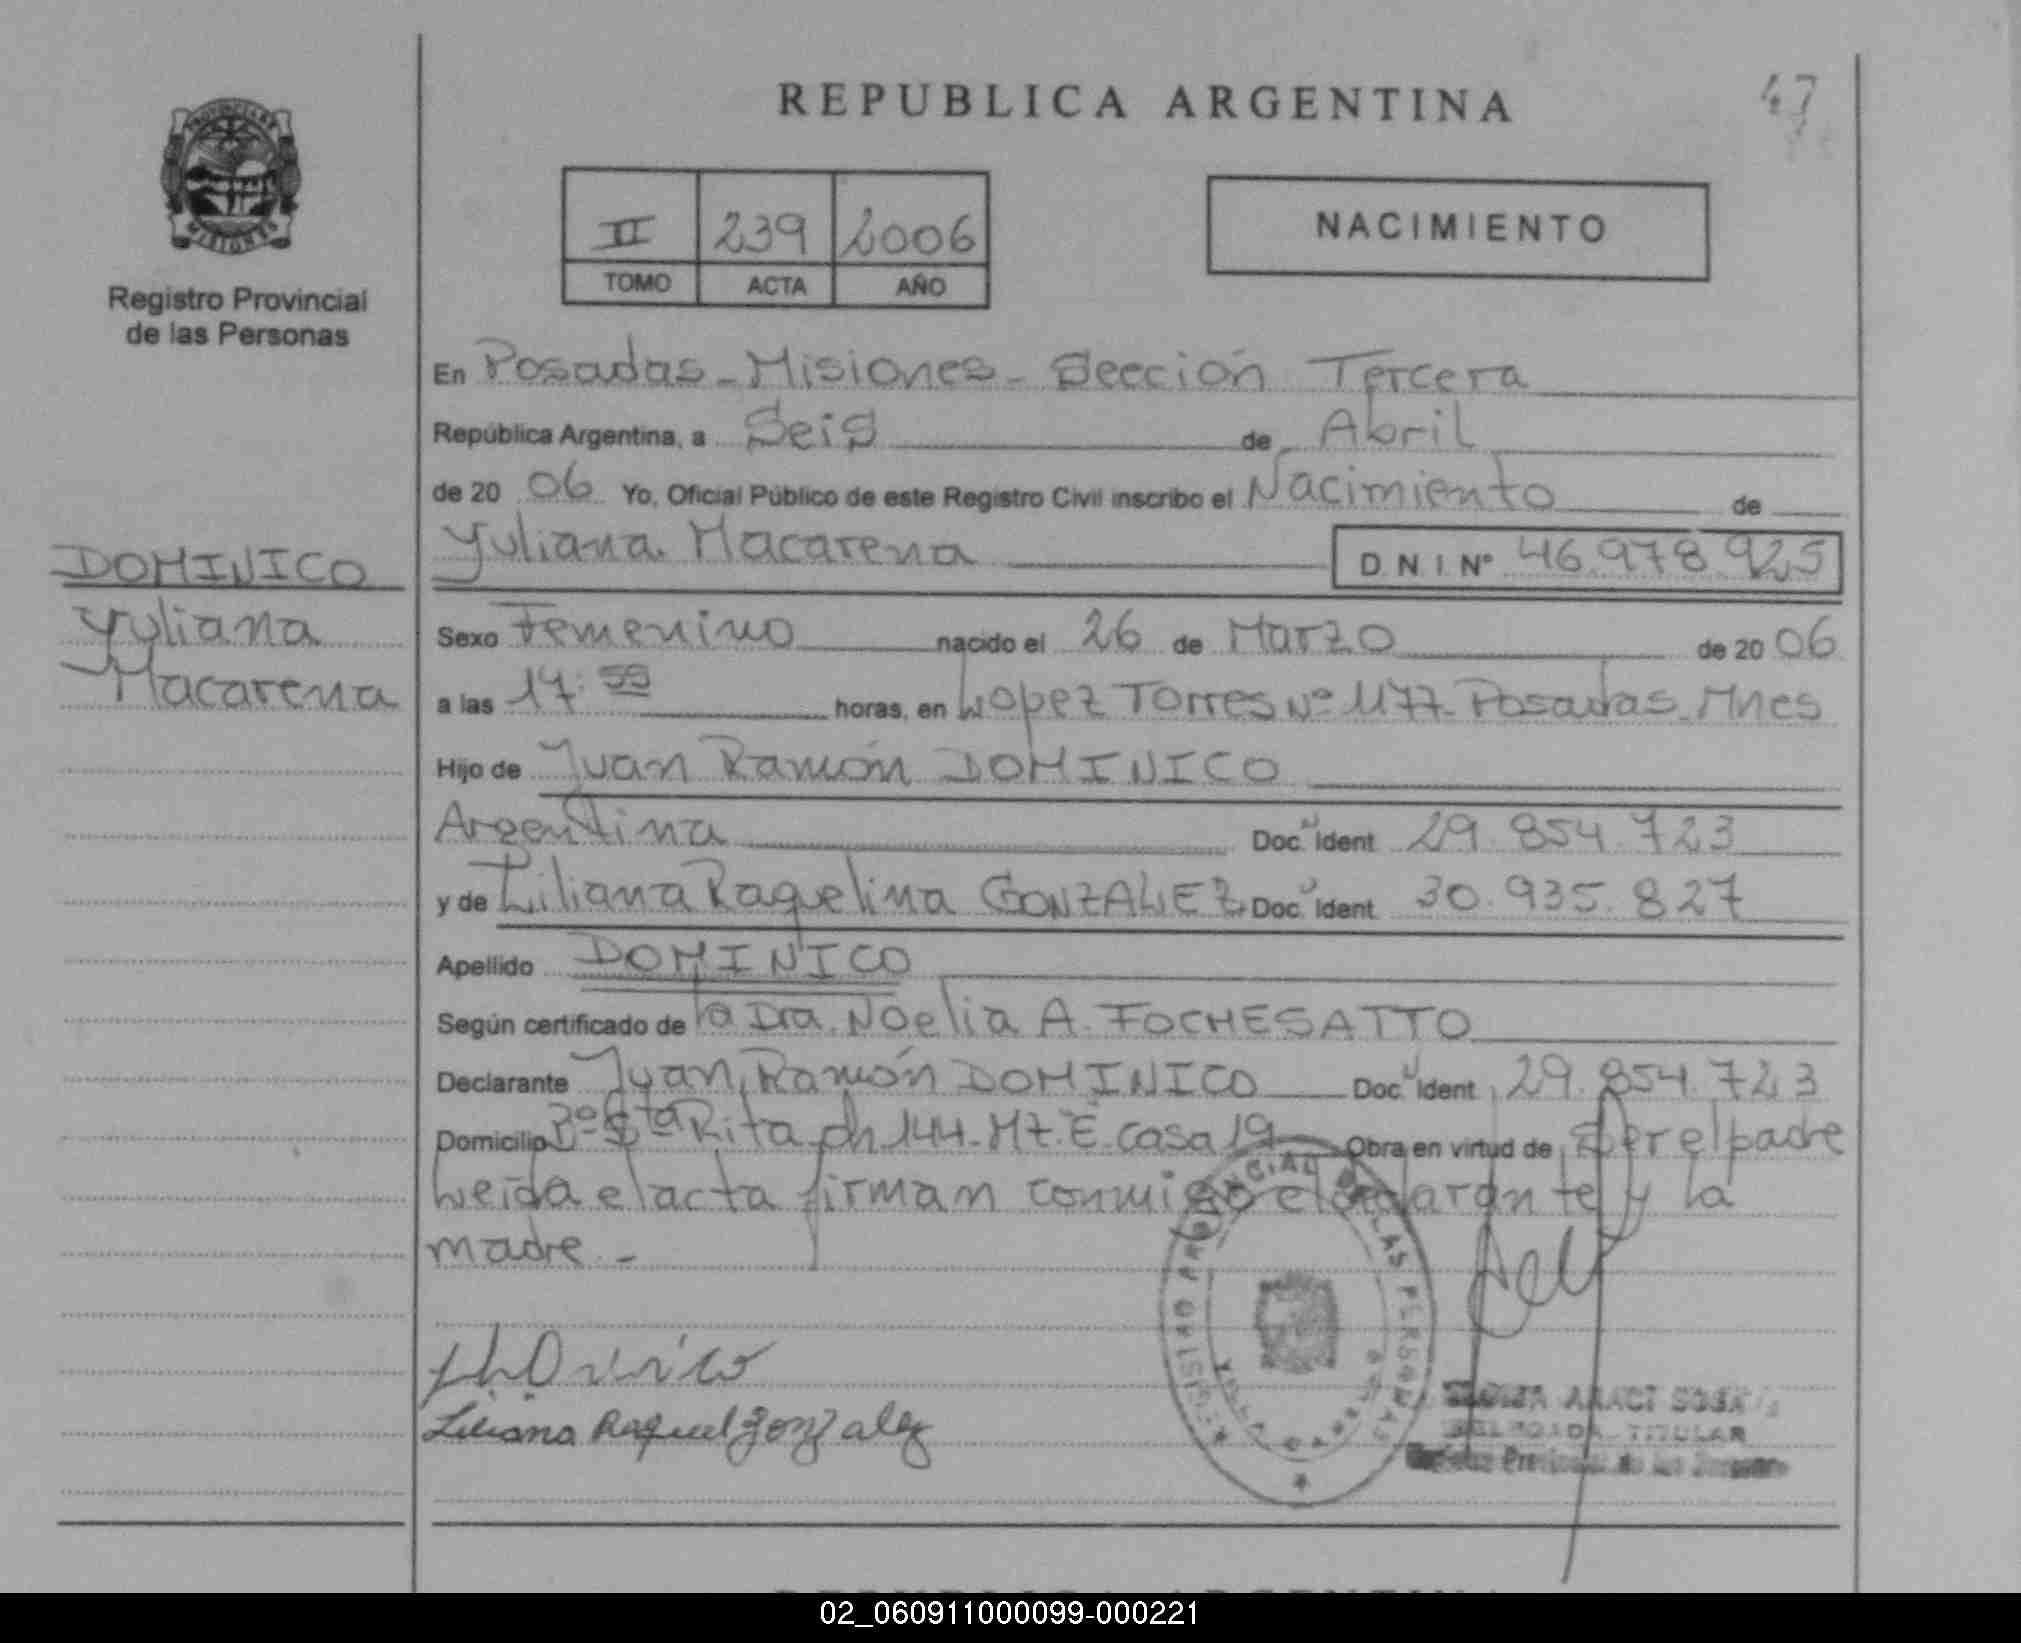 REPUBLICA ARGENTINA
47
PROVINCIA DE
MISIONES
Registro Provincial
de las Personas
II 239 2006
TOMO ACTA AÑO
NACIMIENTO
En Posadas - Misiones - Sección Tercera
República Argentina, a Seis de Abril
de 20 06 Yo, Oficial Público de este Registro Civil inscribo el Nacimiento de
Yuliana Macarena D.N.I Nº 46.978.925
DOMINICO
Yuliana
Macarena
Sexo Femenino nacido el 26 de Marzo de 20 06
a las 17: horas, en Lopez Torres Nº 1177- Posadas - Mnes
Hijo de Juan Ramón DOMINICO
Argentina Doc. Ident 29.854.723
y de Liliana Raquelina GONZALEZ Doc. Ident 30.935.827
Apellido DOMINICO
Según certificado de la Dra. Noelia A. FOCHESATTO
Declarante Juan Ramón DOMINICO Doc. Ident 29.854.723
Domicilio Bº Sta Rita ch 144- Mz. E. casa 19 Obra en virtud de ser el padre
Leida el acta firman conmigo el declarante y la
madre -
Liliana Raquel Gonzalez
ARACI SOSA
DELEGADA TITULAR
Registro Provincial de las Personas
REGISTRO PROVINCIAL DE LAS PERSONAS
REPUBLICA ARGENTINA
02_060911000099-000221